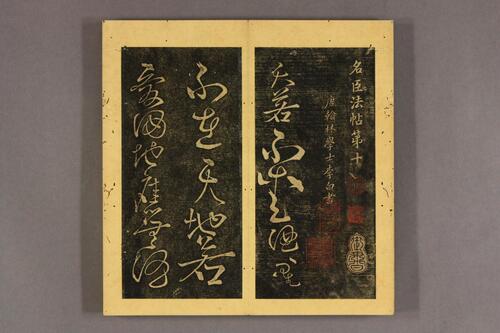 名臣法帖第十
唐翰林學士李白書
天若不愛酒星
不在天地若
愛酒地應無酒